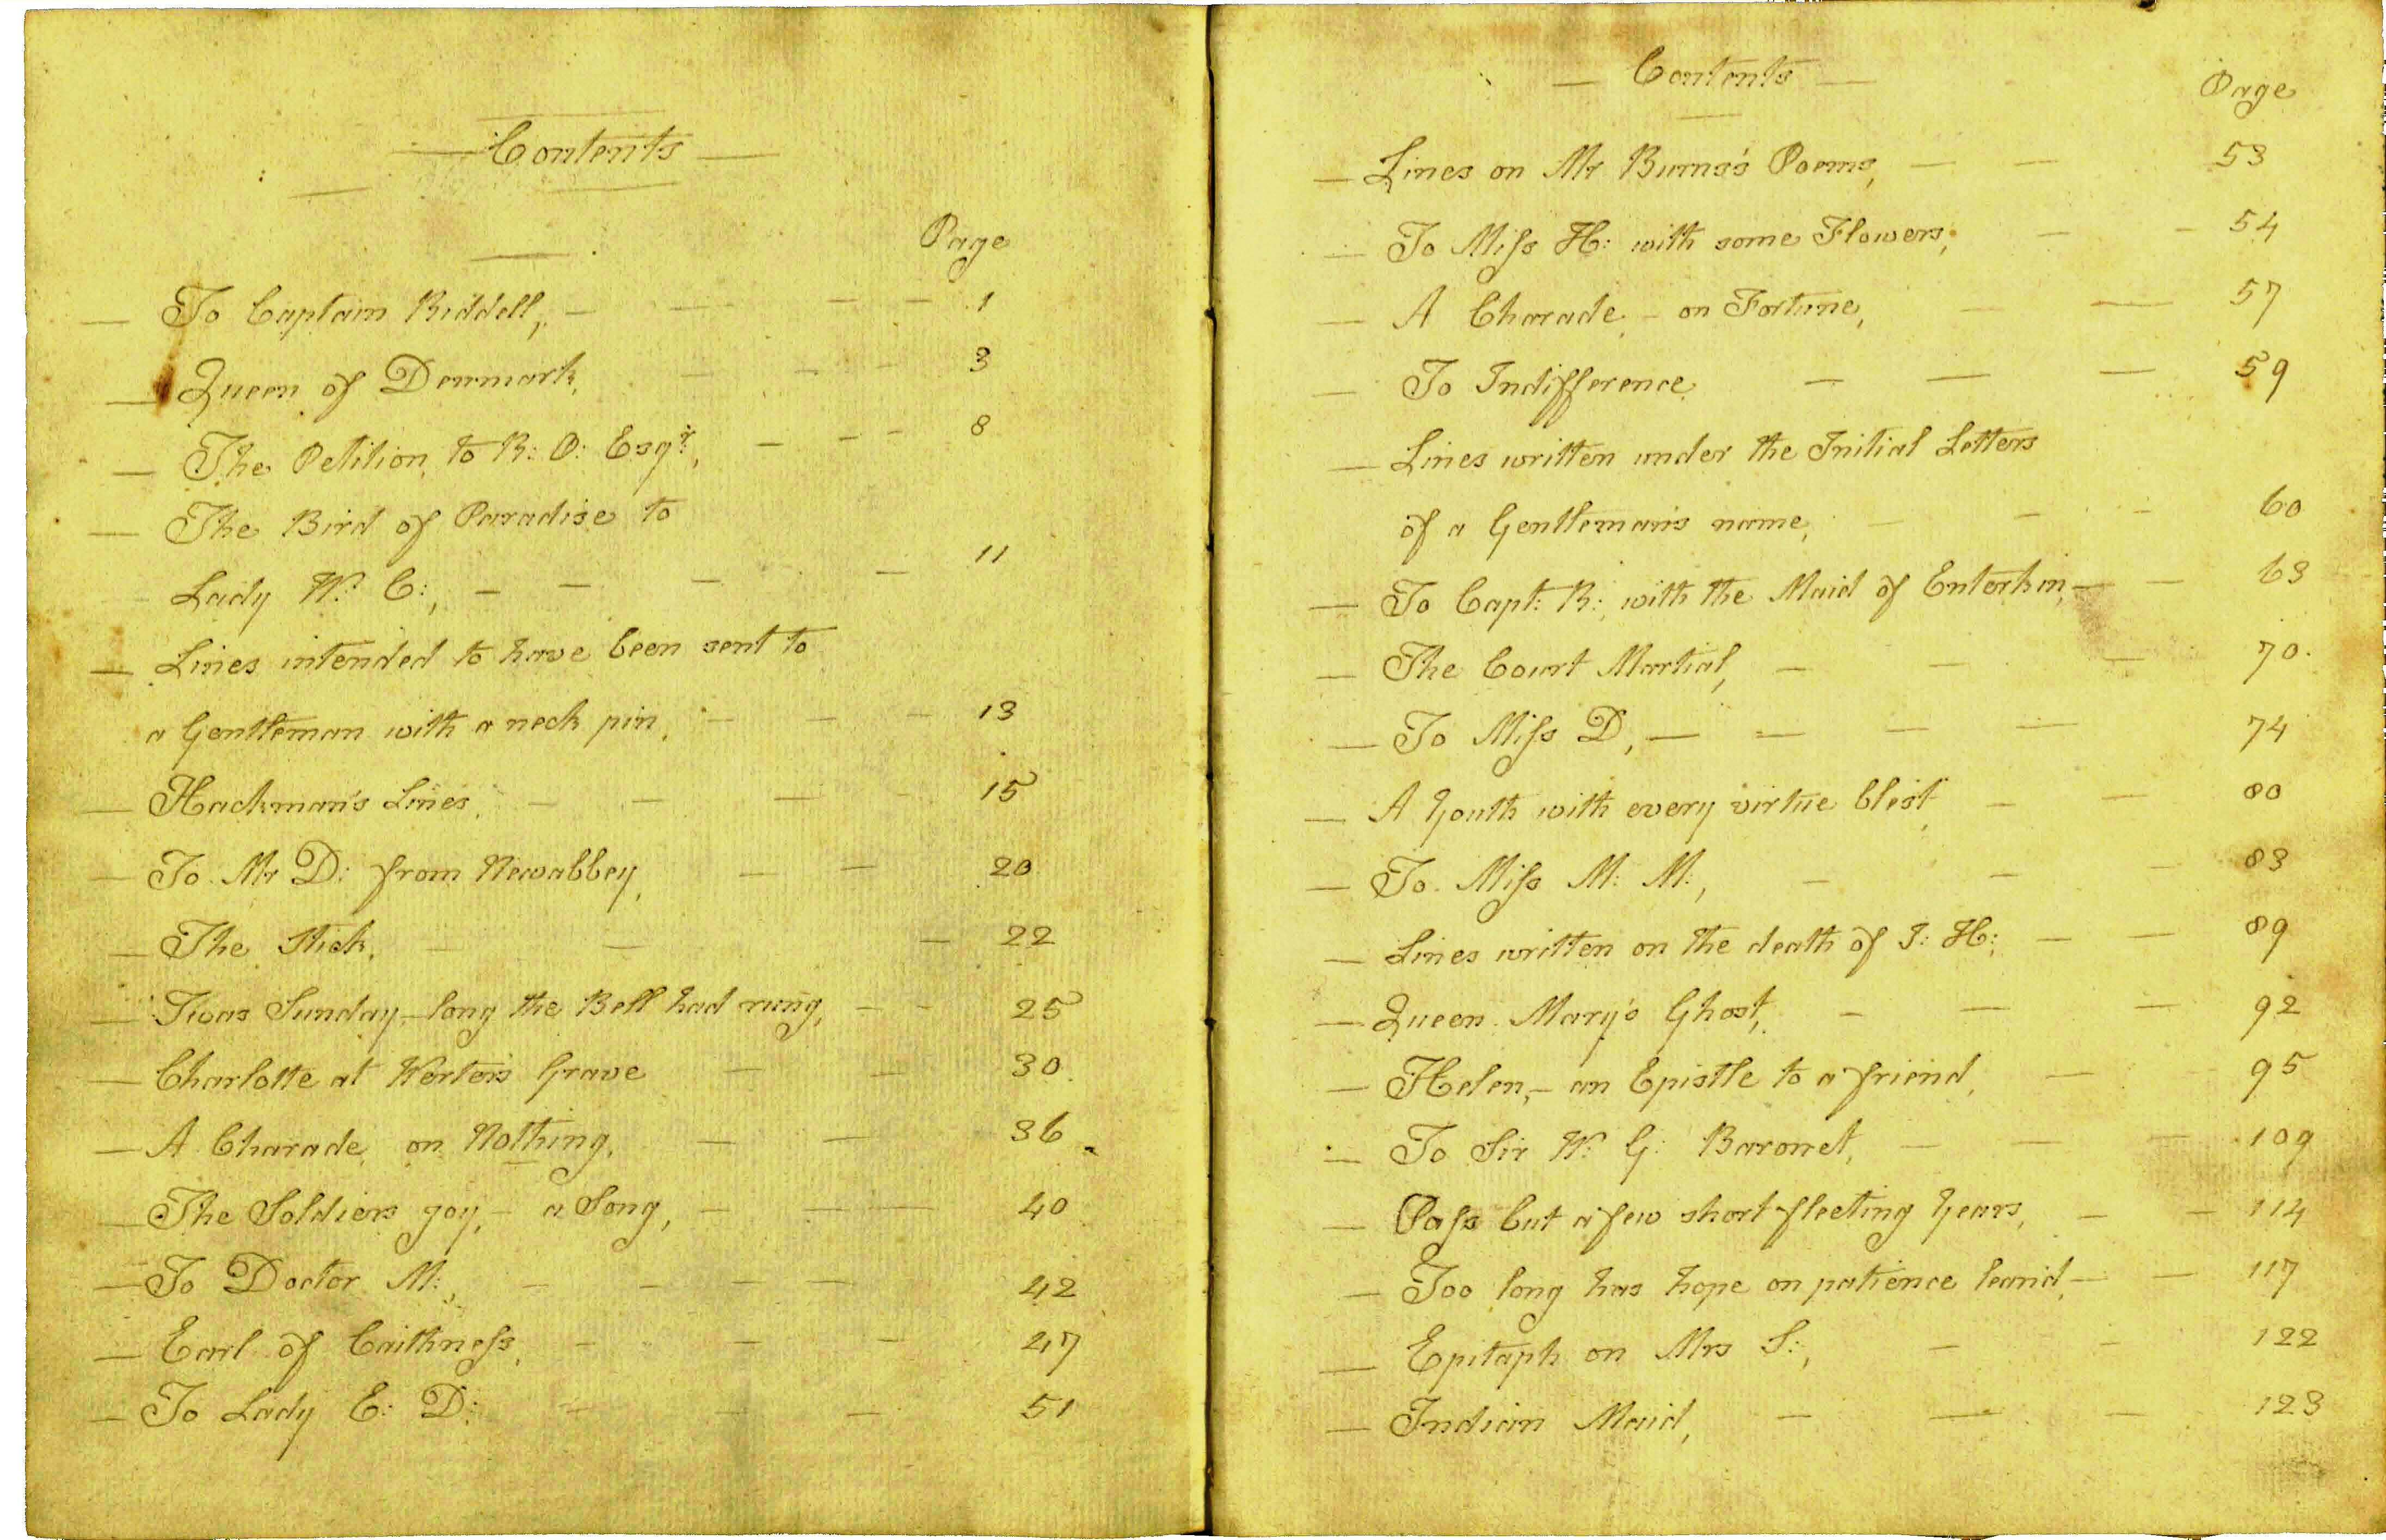 Contents
Page
To Captain Riddell, 1
Queen of Denmark, 3
The Petition, to R: O: Esqr, 8
The Bird of Paradise to
Lady W: C:, 11
Lines intended to have been sent to
a Gentleman with a neck pin, 13
Hackman's Lines, 15
To Mr D: from Newabbey, 20
The Stick, 22
Twas Sunday - long the Bell had rung, 25
Charlotte at Werter's Grave 30
A Charade, on Nothing, 36
The Soldiers joy, - a Song, 40
To Doctor M:, 42
Earl of Caithness, 47
To Lady E: D: 51
Contents
Page
Lines on Mr Burns's Poems, 53
To Miss H: with some Flowers, 54
A Charade - on Fortune, 57
To Indifference, 59
Lines written under the Initial Letters
of a Gentleman's name, 60
To Capt: R: with the Maid of Enterkin, 63
The Court Martial, 70
To Miss D, 74
A Youth with every virtue blest, 80
To Miss M: M:, 83
Lines written on the death of J: H:, 89
Queen Mary's Ghost, 92
Helen, - an Epistle to a friend, 95
To Sir W: G: Baronet, 109
Pass but a few short fleeting Years, 114
Too long has hope on patience lean'd, 117
Epitaph on Mrs S:, 122
Indian Maid, 123